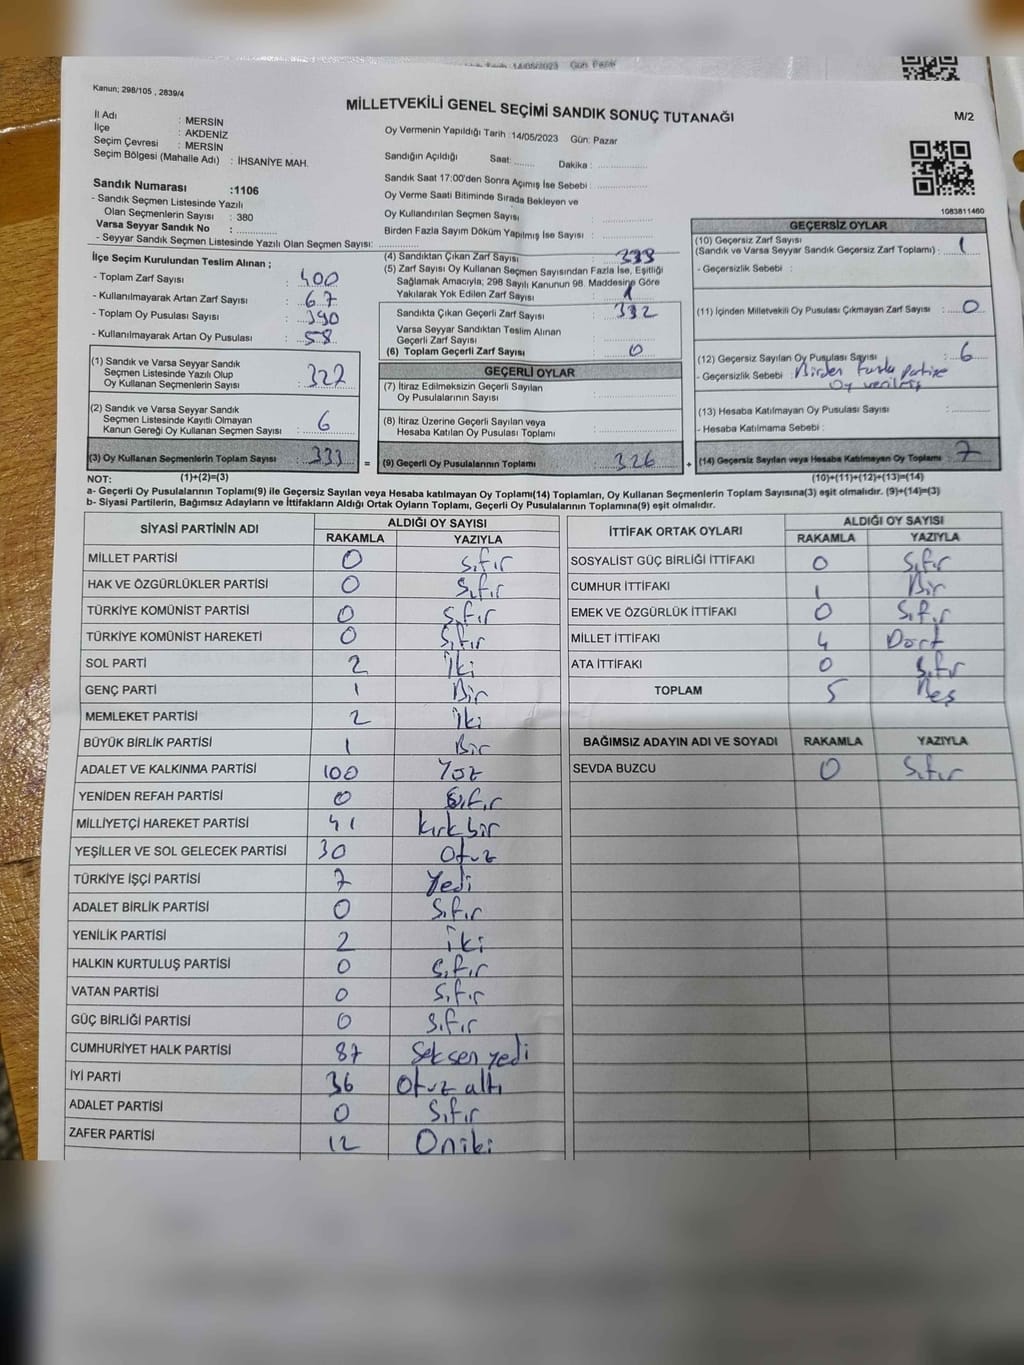 14/05/2023 Gün: Pazar
Kanun; 298/105 , 2839/4
MİLLETVEKİLİ GENEL SEÇİMİ SANDIK SONUÇ TUTANAĞI
M/2
İl Adı : MERSİN
İlçe : AKDENİZ
Seçim Çevresi : MERSİN
Seçim Bölgesi (Mahalle Adı) : İHSANİYE MAH.
Oy Vermenin Yapıldığı Tarih :14/05/2023 Gün: Pazar
Sandığın Açıldığı Saat:....... Dakika : ..................
Sandık Saat 17:00'den Sonra Açılmış İse Sebebi : ..................
Oy Verme Saati Bitiminde Sırada Bekleyen ve
Oy Kullandırılan Seçmen Sayısı
Birden Fazla Sayım Döküm Yapılmış İse Sayısı :
1083811460
Sandık Numarası :1106
- Sandık Seçmen Listesinde Yazılı
Olan Seçmenlerin Sayısı : 380
Varsa Seyyar Sandık No : ..................
- Seyyar Sandık Seçmen Listesinde Yazılı Olan Seçmen Sayısı: ..................
İlçe Seçim Kurulundan Teslim Alınan ;
- Toplam Zarf Sayısı : 400
- Kullanılmayarak Artan Zarf Sayısı : 67
- Toplam Oy Pusulası Sayısı : 390
- Kullanılmayarak Artan Oy Pusulası : 58
(1) Sandık ve Varsa Seyyar Sandık
Seçmen Listesinde Yazılı Olup
Oy Kullanan Seçmenlerin Sayısı : 327
(2) Sandık ve Varsa Seyyar Sandık
Seçmen Listesinde Kayıtlı Olmayan
Kanun Gereği Oy Kullanan Seçmen Sayısı : 6
(3) Oy Kullanan Seçmenlerin Toplam Sayısı : 333
(4) Sandıktan Çıkan Zarf Sayısı : 333
(5) Zarf Sayısı Oy Kullanan Seçmen Sayısından Fazla İse, Eşitliği
Sağlamak Amacıyla; 298 Sayılı Kanunun 98. Maddesine Göre
Yakılarak Yok Edilen Zarf Sayısı : 1
Sandıkta Çıkan Geçerli Zarf Sayısı : 332
Varsa Seyyar Sandıktan Teslim Alınan
Geçerli Zarf Sayısı :
(6) Toplam Geçerli Zarf Sayısı : 0
GEÇERLİ OYLAR
(7) İtiraz Edilmeksizin Geçerli Sayılan
Oy Pusulalarının Sayısı :
(8) İtiraz Üzerine Geçerli Sayılan veya
Hesaba Katılan Oy Pusulası Toplamı :
= (9) Geçerli Oy Pusulalarının Toplamı : 326
GEÇERSİZ OYLAR
(10) Geçersiz Zarf Sayısı
(Sandık ve Varsa Seyyar Sandık Geçersiz Zarf Toplamı) : 1
- Geçersizlik Sebebi :
(11) İçinden Milletvekili Oy Pusulası Çıkmayan Zarf Sayısı : 0
(12) Geçersiz Sayılan Oy Pusulası Sayısı : 6
- Geçersizlik Sebebi : Birden fazla partiye
oy verilmiş
(13) Hesaba Katılmayan Oy Pusulası Sayısı :
- Hesaba Katılmama Sebebi :
+ (14) Geçersiz Sayılan veya Hesaba Katılmayan Oy Toplamı : 7
NOT: (1)+(2)=(3) (10)+(11)+(12)+(13)=(14)
a- Geçerli Oy Pusulalarının Toplamı(9) ile Geçersiz Sayılan veya Hesaba katılmayan Oy Toplamı(14) Toplamları, Oy Kullanan Seçmenlerin Toplam Sayısına(3) eşit olmalıdır. (9)+(14)=(3)
b- Siyasi Partilerin, Bağımsız Adayların ve İttifakların Aldığı Ortak Oyların Toplamı, Geçerli Oy Pusulalarının Toplamına(9) eşit olmalıdır.
SİYASİ PARTİNİN ADI ALDIĞI OY SAYISI
RAKAMLA YAZIYLA
MİLLET PARTİSİ 0 Sıfır
HAK VE ÖZGÜRLÜKLER PARTİSİ 0 Sıfır
TÜRKİYE KOMÜNİST PARTİSİ 0 Sıfır
TÜRKİYE KOMÜNİST HAREKETİ 0 Sıfır
SOL PARTİ 2 İki
GENÇ PARTİ 1 Bir
MEMLEKET PARTİSİ 2 İki
BÜYÜK BİRLİK PARTİSİ 1 Bir
ADALET VE KALKINMA PARTİSİ 100 Yüz
YENİDEN REFAH PARTİSİ 0 Sıfır
MİLLİYETÇİ HAREKET PARTİSİ 41 kırkbir
YEŞİLLER VE SOL GELECEK PARTİSİ 30 Otuz
TÜRKİYE İŞÇİ PARTİSİ 7 Yedi
ADALET BİRLİK PARTİSİ 0 Sıfır
YENİLİK PARTİSİ 2 İki
HALKIN KURTULUŞ PARTİSİ 0 Sıfır
VATAN PARTİSİ 0 Sıfır
GÜÇ BİRLİĞİ PARTİSİ 0 Sıfır
CUMHURİYET HALK PARTİSİ 87 Seksen yedi
İYİ PARTİ 36 Otuz altı
ADALET PARTİSİ 0 Sıfır
ZAFER PARTİSİ 12 Oniki
İTTİFAK ORTAK OYLARI ALDIĞI OY SAYISI
RAKAMLA YAZIYLA
SOSYALİST GÜÇ BİRLİĞİ İTTİFAKI 0 Sıfır
CUMHUR İTTİFAKI 1 Bir
EMEK VE ÖZGÜRLÜK İTTİFAKI 0 Sıfır
MİLLET İTTİFAKI 4 Dört
ATA İTTİFAKI 0 Sıfır
TOPLAM 5 Beş
BAĞIMSIZ ADAYIN ADI VE SOYADI RAKAMLA YAZIYLA
SEVDA BUZCU 0 Sıfır